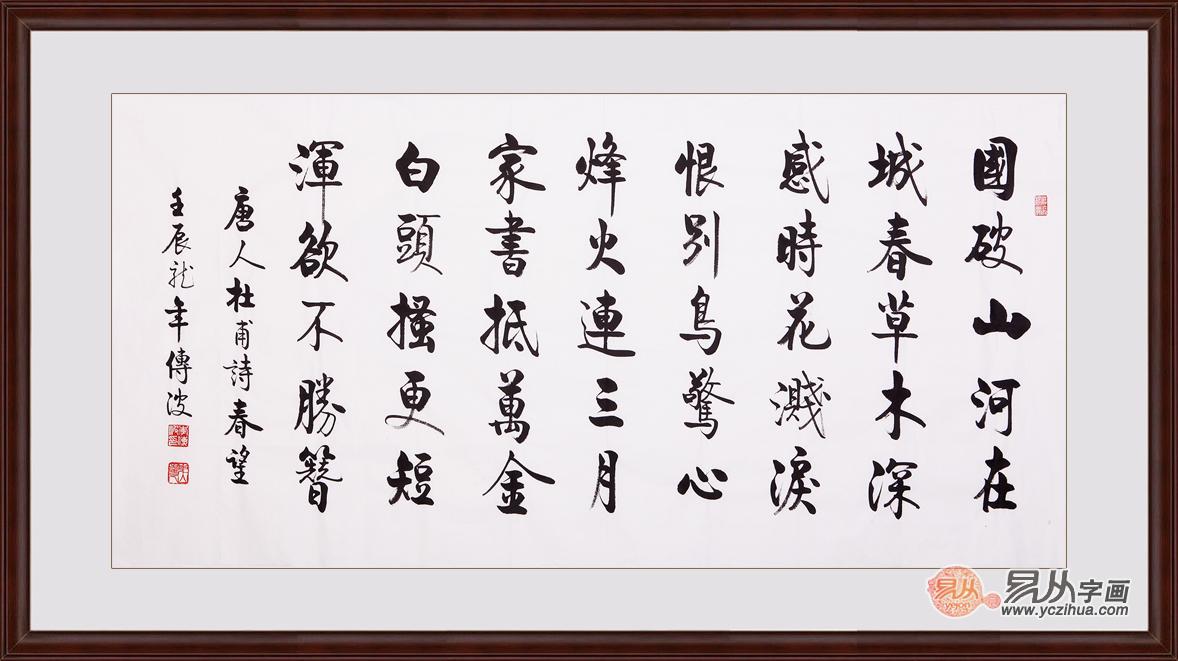 國破山河在
城春草木深
感時花濺淚
恨別鳥驚心
烽火連三月
家書抵萬金
白頭搔更短
渾欲不勝簪
唐人杜甫詩春望
壬辰龍年傳波
易从
ycjon
易从字画
www.yczihua.com